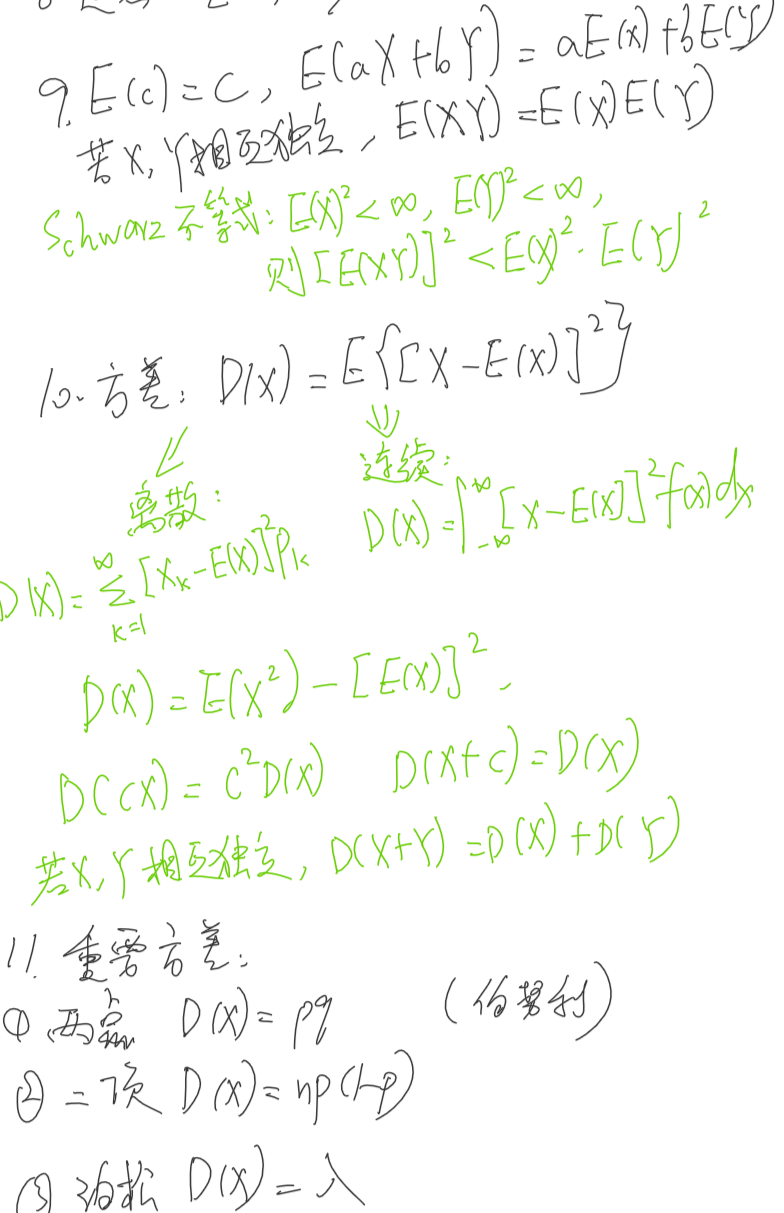 9. E(c)=C, E(aX+bY)=aE(x)+bE(Y)
若X,Y相互独立, E(XY)=E(X)E(Y)
Schwarz不等式: E(X)²<∞, E(Y)²<∞,
则[E(XY)]²<E(X)²·E(Y)²
10.方差: D(X)=E{[X-E(X)]²}
离散:
连续:
D(X)=∫_{-∞}^{+∞}[x-E(X)]²f(x)dx
D(X)=∑_{k=1}^{∞}[X_k-E(X)]²P_k
D(X)=E(X²)-[E(X)]².
D(CX)=C²D(X) D(X+c)=D(X)
若X,Y相互独立, D(X+Y)=D(X)+D(Y)
11.重要方差:
① 两点 D(X)=pq (伯努利)
② 二项 D(X)=np(1-p)
③ 泊松 D(X)=λ